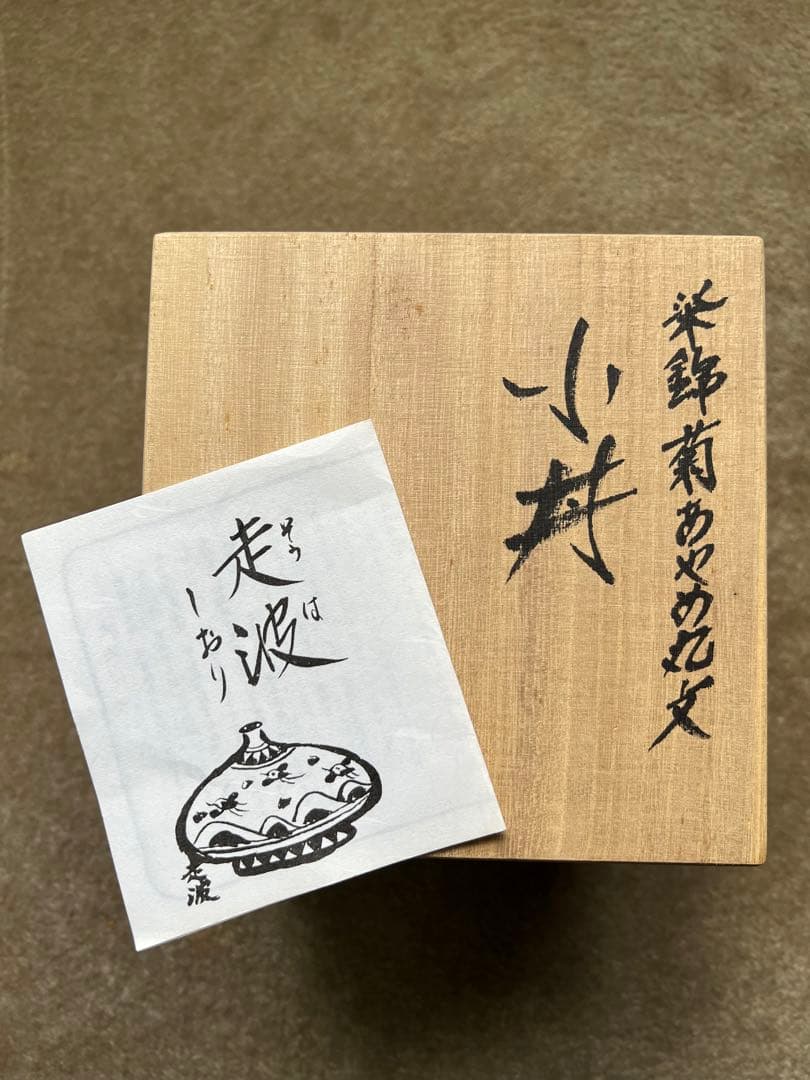 染錦菊あやめ丸文
小丼
走波
そう
は
しおり
走波